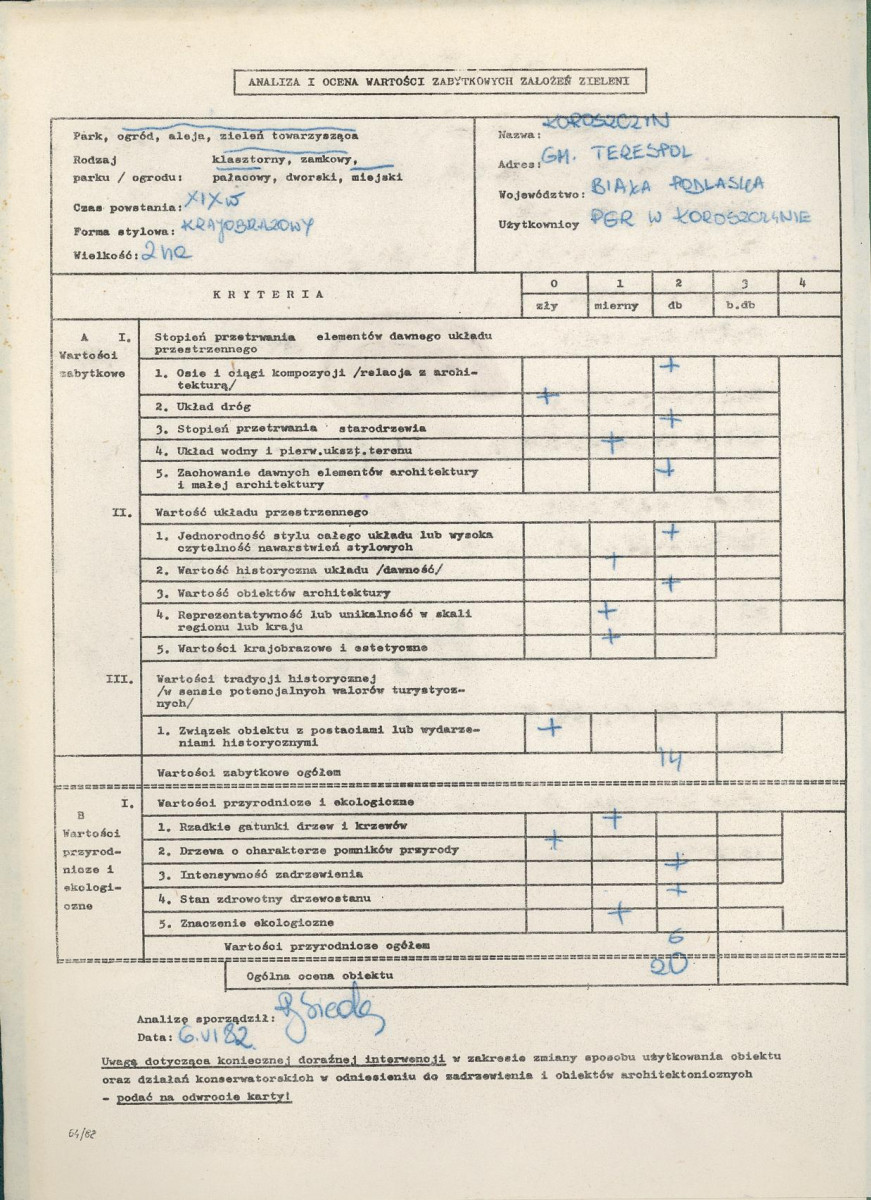 ANALIZA I OCENA WARTOŚCI ZABYTKOWYCH ZAŁOŻEŃ ZIELENI
Park, ogród, aleja, zieleń towarzysząca
Rodzaj klasztorny, zamkowy,
parku / ogrodu: pałacowy, dworski, miejski
Czas powstania: XIX w
Forma stylowa: KRAJOBRAZOWY
Wielkość: 2 ha
Nazwa: KOROSZCZYN
Adres: GM. TERESPOL
Województwo: BIAŁA PODLASKA
Użytkownicy PGR W KOROSZCZYNIE
KRYTERIA
0 1 2 3 4
zły mierny db b.db
A I. Stopień przetrwania elementów dawnego układu
przestrzennego
Wartości
zabytkowe
1. Osie i ciągi kompozycji /relacja z archi-
tekturą/ +
2. Układ dróg +
3. Stopień przetrwania starodrzewia +
4. Układ wodny i pierw.ukszt.terenu +
5. Zachowanie dawnych elementów architektury
i małej architektury +
II. Wartość układu przestrzennego
1. Jednorodność stylu całego układu lub wysoka
czytelność nawarstwień stylowych +
2. Wartość historyczna układu /dawność/ +
3. Wartość obiektów architektury +
4. Reprezentatywność lub unikalność w skali
regionu lub kraju +
5. Wartości krajobrazowe i estetyczne +
III. Wartości tradycji historycznej
/w sensie potencjalnych walorów turystycz-
nych/
1. Związek obiektu z postaciami lub wydarze-
niami historycznymi +
Wartości zabytkowe ogółem 14
B I. Wartości przyrodnicze i ekologiczne
Wartości
przyrod-
nicze i
ekologi-
czne
1. Rzadkie gatunki drzew i krzewów +
2. Drzewa o charakterze pomników przyrody +
3. Intensywność zadrzewienia +
4. Stan zdrowotny drzewostanu +
5. Znaczenie ekologiczne +
Wartości przyrodnicze ogółem 6
Ogólna ocena obiektu 20
Analizę sporządził:
Data: 6.VI 82
Uwagę dotycząca koniecznej doraźnej interwencji w zakresie zmiany sposobu użytkowania obiektu
oraz działań konserwatorskich w odniesieniu do zadrzewienia i obiektów architektonicznych
- podać na odwrocie karty!
64/82